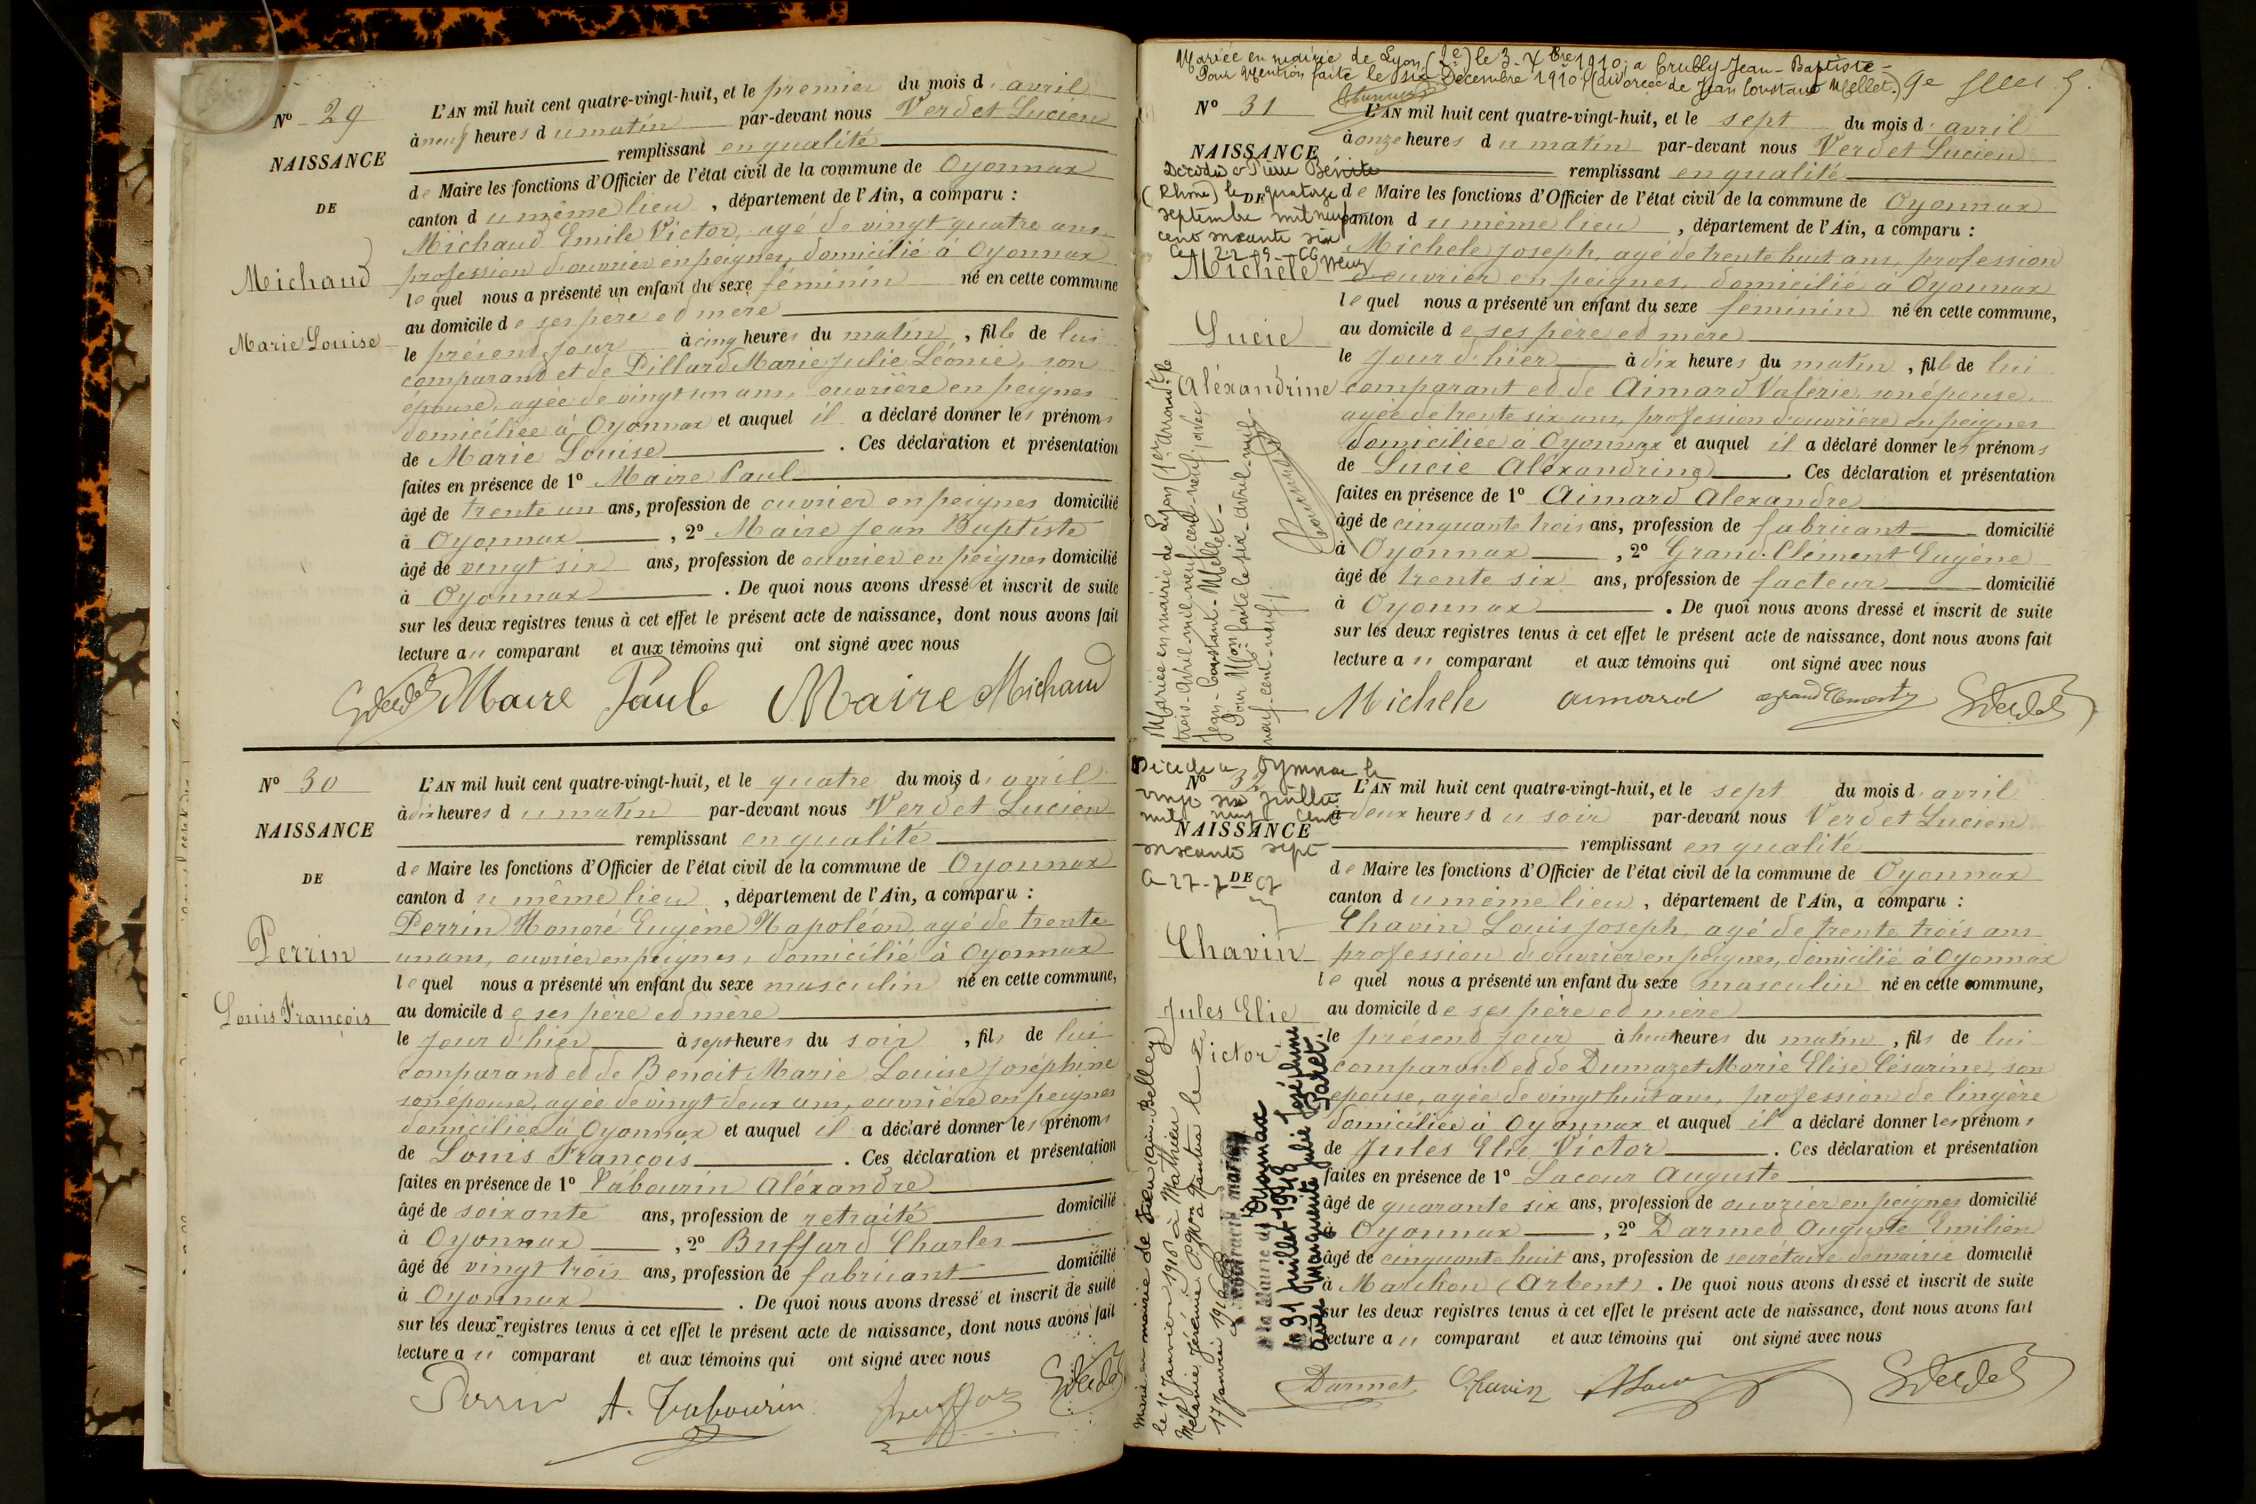 Nº 29
NAISSANCE
DE
Michaud
Marie Louise
L'AN mil huit cent quatre-vingt-huit, et le premier du mois d'avril
à neuf heures du matin par-devant nous Verdet Lucien
remplissant en qualité
de Maire les fonctions d'Officier de l'état civil de la commune de Oyonnax
canton du même lieu, département de l'Ain, a comparu :
Michaud Emile Victor, agé de vingt quatre ans
profession d'ouvrier en peignes, domicilié à Oyonnax
lequel nous a présenté un enfant du sexe féminin né en cette commune
au domicile de ses père et mère
le présent jour à cinq heures du matin, fille de lui
comparant et de Pillard Marie Julie Léonie, son
épouse, agée de vingt un ans, ouvrière en peignes
domiciliée à Oyonnax et auquel il a déclaré donner les prénoms
de Marie Louise. Ces déclaration et présentation
faites en présence de 1º Maire Paul
âgé de trente un ans, profession de ouvrier en peignes domicilié
à Oyonnax, 2º Maire Jean Baptiste
âgé de vingt six ans, profession de ouvrier en peignes domicilié
à Oyonnax. De quoi nous avons dressé et inscrit de suite
sur les deux registres tenus à cet effet le présent acte de naissance, dont nous avons fait
lecture au comparant et aux témoins qui ont signé avec nous
Verdet Maire Paul Maire Michaud
Nº 30
NAISSANCE
DE
Perrin
Louis François
L'AN mil huit cent quatre-vingt-huit, et le quatre du mois d'avril
à dix heures du matin par-devant nous Verdet Lucien
remplissant en qualité
de Maire les fonctions d'Officier de l'état civil de la commune de Oyonnax
canton du même lieu, département de l'Ain, a comparu :
Perrin Honoré Eugène Napoléon, agé de trente
un ans, ouvrier en peignes, domicilié à Oyonnax
lequel nous a présenté un enfant du sexe masculin né en cette commune,
au domicile de ses père et mère
le jour d'hier à sept heures du soir, fils de lui
comparant et de Benoit Marie Louise Joséphine
son épouse, agée de vingt deux ans, ouvrière en peignes
domiciliée à Oyonnax et auquel il a déclaré donner les prénoms
de Louis François. Ces déclaration et présentation
faites en présence de 1º Tabourin Aléxandre
âgé de soixante ans, profession de retraité domicilié
à Oyonnax, 2º Buffard Charles
âgé de vingt trois ans, profession de fabricant domicilié
à Oyonnax. De quoi nous avons dressé et inscrit de suite
sur les deux registres tenus à cet effet le présent acte de naissance, dont nous avons fait
lecture au comparant et aux témoins qui ont signé avec nous
Perrin A. Tabourin Verdet
Mariée en mairie de Lyon (2e) le 3-Xbre 1910, à Crubly-Jean-Baptiste-
Pour Mention faite le six Décembre 1910 (divorcée de Jean Constant Mellet.)
Nº 31
NAISSANCE
DE
Décédée à Pierre Bénite
(Rhône) le quatorze
septembre mil neuf
cent soixante six
Michele
Lucie
Aléxandrine
Mariée en mairie de Lyon (1er arrondt) le
trois-avril-mil-neuf-cent-neuf, avec
Jean-Constant-Mellet-
Pour Mon faite le six-avril-mil-
neuf-cent-neuf
L'AN mil huit cent quatre-vingt-huit, et le sept du mois d'avril
à onze heures du matin par-devant nous Verdet Lucien
remplissant en qualité
de Maire les fonctions d'Officier de l'état civil de la commune de Oyonnax
canton du même lieu, département de l'Ain, a comparu :
Michele Joseph, agé de trente huit ans, profession
d'ouvrier en peignes, domicilié à Oyonnax
lequel nous a présenté un enfant du sexe féminin né en cette commune,
au domicile de ses père et mère
le jour d'hier à dix heures du matin, fille de lui
comparant et de Aimard Valérie, son épouse,
agée de trente six ans, profession d'ouvrière en peignes
domiciliée à Oyonnax et auquel il a déclaré donner les prénoms
de Lucie Aléxandrine. Ces déclaration et présentation
faites en présence de 1º Aimard Alexandre
âgé de cinquante trois ans, profession de fabricant domicilié
à Oyonnax, 2º Grand-Clément Eugène
âgé de trente six ans, profession de facteur domicilié
à Oyonnax. De quoi nous avons dressé et inscrit de suite
sur les deux registres tenus à cet effet le présent acte de naissance, dont nous avons fait
lecture au comparant et aux témoins qui ont signé avec nous
Michele Aimard Grand Clement Verdet
Nº 32
NAISSANCE
DE
Décédé à Oyonnax le
vingt six juillet
mil neuf cent
soixante sept
Chavin
Jules Elie
Victor
le 15 Janvier 1910 à Mathieu
17 Janvier 1910
à la Mairie d'Oyonnax
le 31 Juillet 1948
avec Marguerite Julie Joséphine
Paret.
L'AN mil huit cent quatre-vingt-huit, et le sept du mois d'avril
à deux heures du soir par-devant nous Verdet Lucien
remplissant en qualité
de Maire les fonctions d'Officier de l'état civil de la commune de Oyonnax
canton du même lieu, département de l'Ain, a comparu :
Chavin Louis Joseph, agé de trente trois ans
profession d'ouvrier en peignes, domicilié à Oyonnax
lequel nous a présenté un enfant du sexe masculin né en cette commune,
au domicile de ses père et mère
le présent jour à huit heures du matin, fils de lui
comparant et de Dumazet Marie Elise Césarine, son
épouse, agée de vingt huit ans, profession de lingère
domiciliée à Oyonnax et auquel il a déclaré donner les prénoms
de Jules Elie Victor. Ces déclaration et présentation
faites en présence de 1º Lacour Auguste
âgé de quarante six ans, profession de ouvrier en peignes domicilié
à Oyonnax, 2º Darmet Auguste Emilien
âgé de cinquante huit ans, profession de secrétaire de mairie domicilié
à Marchon (Arbent). De quoi nous avons dressé et inscrit de suite
sur les deux registres tenus à cet effet le présent acte de naissance, dont nous avons fait
lecture au comparant et aux témoins qui ont signé avec nous
Darmet Chavin ALacour Verdet